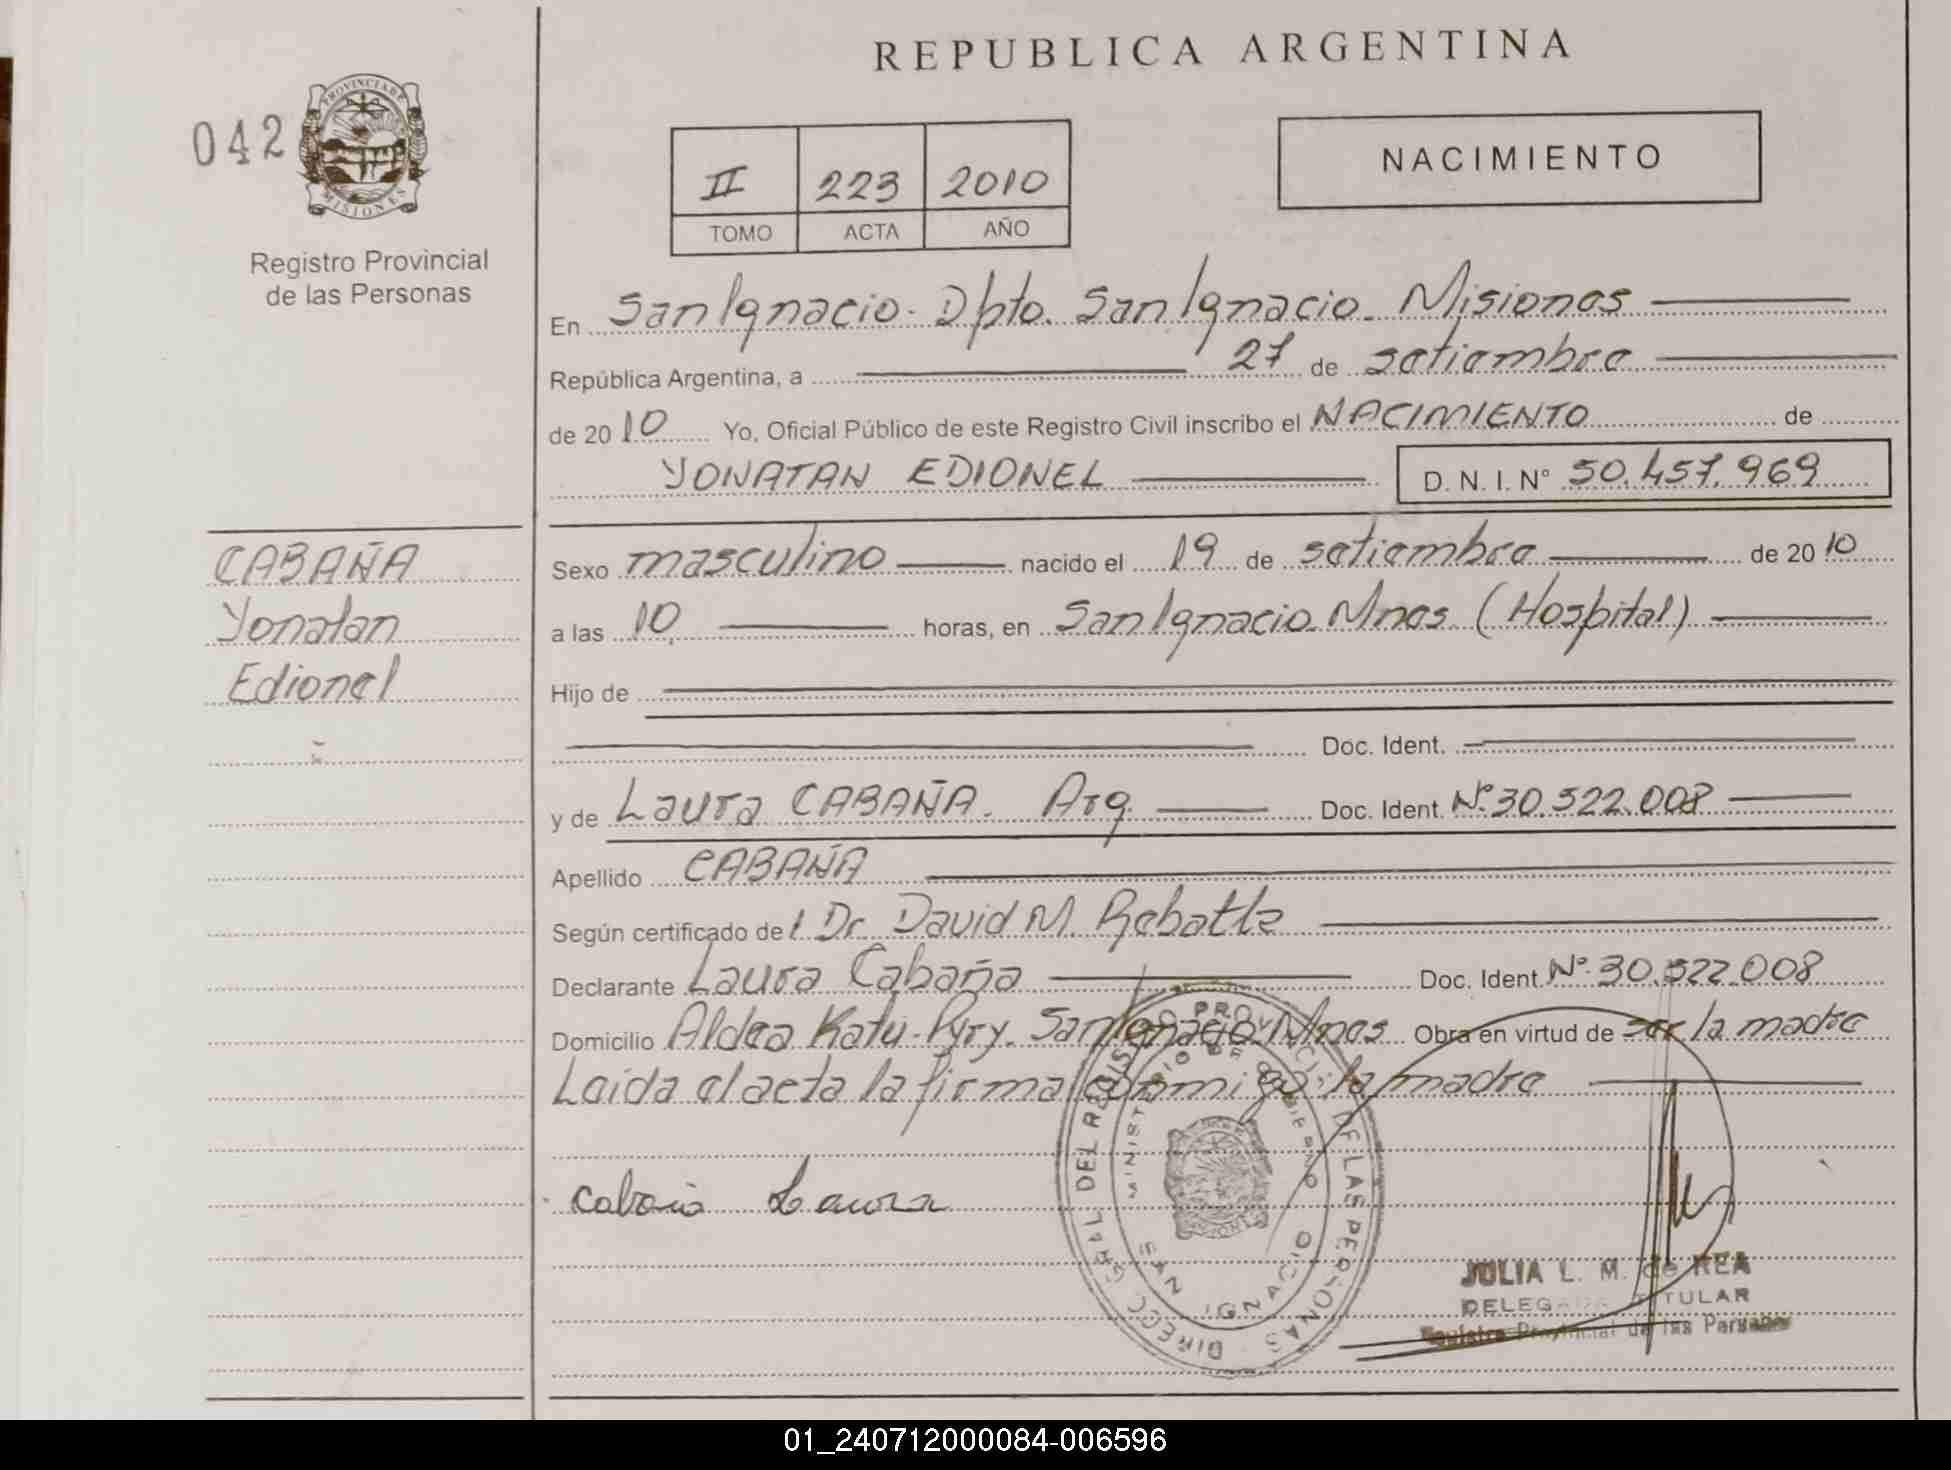 REPUBLICA ARGENTINA
042
PROVINCIA DE
MISIONES
Registro Provincial
de las Personas
II 223 2010
TOMO ACTA AÑO
NACIMIENTO
En San Ignacio. Dpto. San Ignacio. Misiones
República Argentina, a 27 de setiembre
de 2010 Yo, Oficial Público de este Registro Civil inscribo el NACIMIENTO de
YONATAN EDIONEL D. N. I. Nº 50.457.969
CABAÑA
Yonatan
Edionel
Sexo masculino nacido el 19 de setiembre de 2010
a las 10, horas, en San Ignacio. Mnes (Hospital)
Hijo de
Doc. Ident.
y de Laura CABAÑA. Arg. Doc. Ident. Nº 30.522.008
Apellido CABAÑA
Según certificado del Dr. David M. Rebatta
Declarante Laura Cabaña Doc. Ident. Nº. 30.522.008
Domicilio Aldea Katú-Pyry. San Ignacio. Mnes. Obra en virtud de ser la madre
Laída el acta la firma conmigo la madre
Cabaña Laura
DIRECC. GRAL DEL REGISTRO PROVINCIAL DE LAS PERSONAS
MINISTERIO DE GOBIERNO
SAN IGNACIO
JULIA L. M. de REA
DELEGADA TITULAR
Registro Provincial de las Personas
01_240712000084-006596